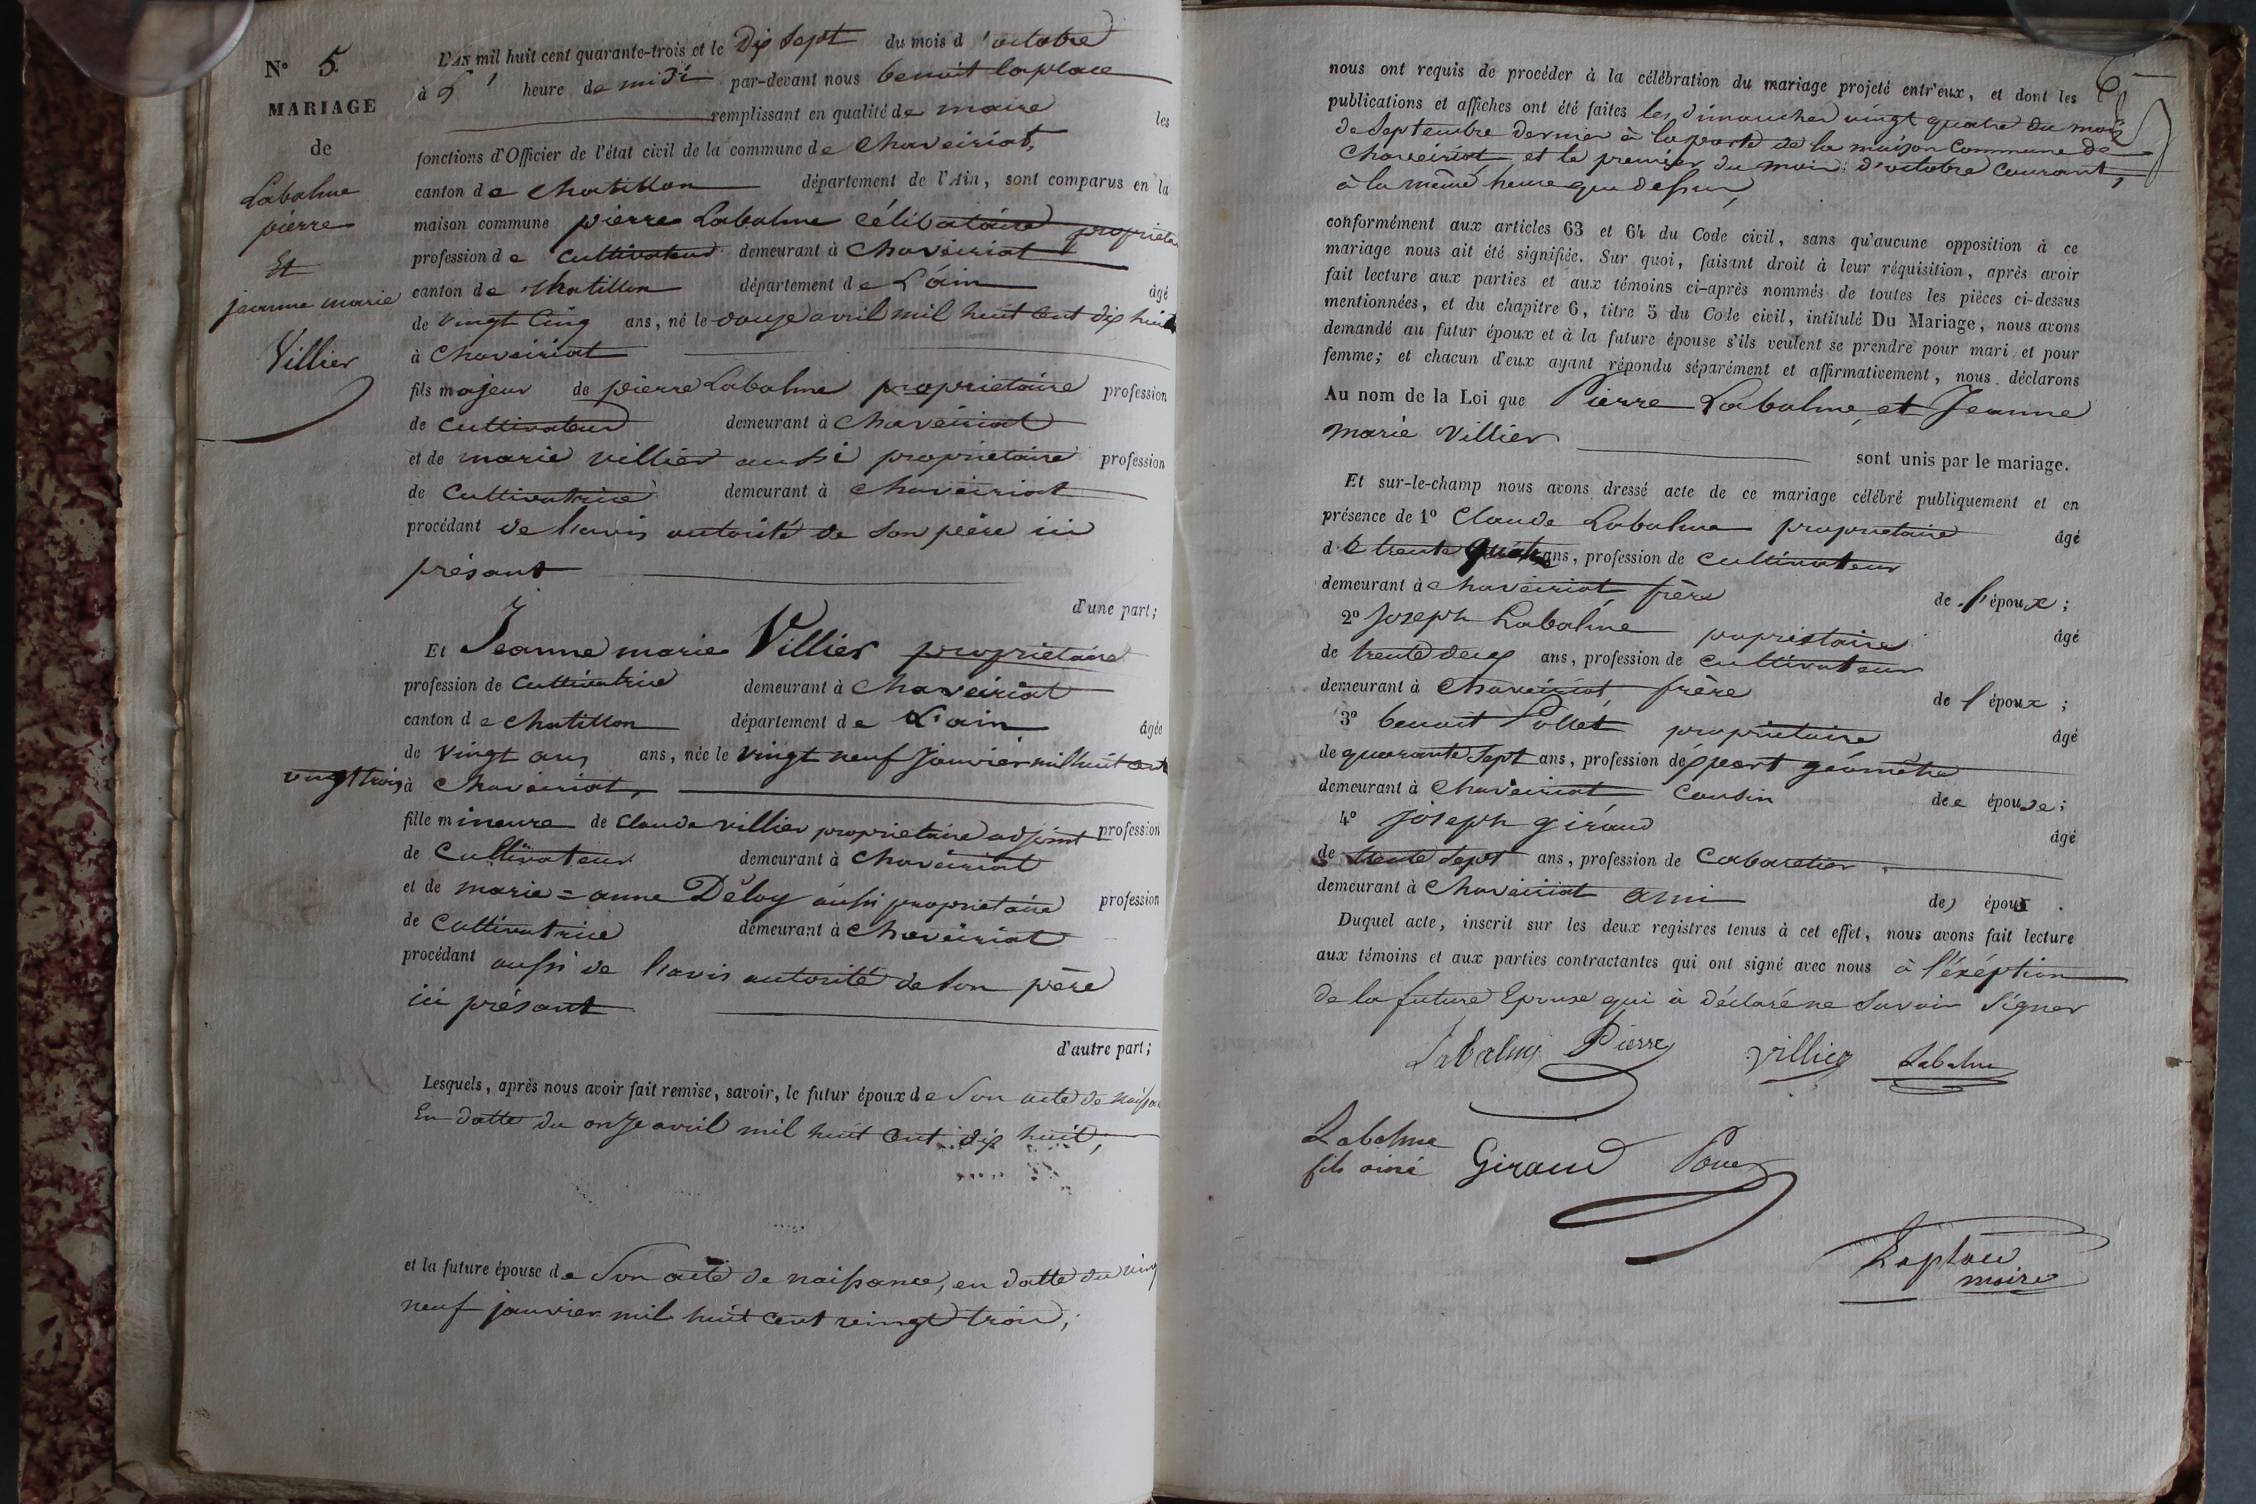 N° 5.
MARIAGE
de
Labalme
pierre
Et
jeanne marie
Villier
L'AN mil huit cent quarante-trois et le Dix Sept du mois d'octobre
à heure de midi par-devant nous benoit laplace
remplissant en qualité de maire les
fonctions d'Officier de l'état civil de la commune de chaveiriat,
canton de chatillon département de l'Ain, sont comparus en la
maison commune pierre Labalme célibataire propriétaire
profession de cultivateur demeurant à chaveiriat
canton de chatillon département de L'ain âgé
de vingt cinq ans, né le douze avril mil huit cent dix huit
à chaveiriat
fils majeur de pierre Labalme propriétaire profession
de cultivateur demeurant à chaveiriat
et de marie villier aussi propriétaire profession
de cultivatrice demeurant à chaveiriat
procédant de l'avis autorité de son père ici
présant
d'une part;
Et Jeanne marie Villier propriétaire
profession de cultivatrice demeurant à chaveiriat
canton de chatillon département de L'ain âgée
de vingt ans ans, née le vingt neuf Janvier mil huit cent
vingt trois à chaveiriat,
fille mineure de claude villier propriétaire adjoint profession
de cultivateur demeurant à chaveiriat
et de marie=anne Déloy aussi propriétaire profession
de cultivatrice demeurant à chaveiriat
procédant aussi de l'avis autorité de son père
ici présant
d'autre part;
Lesquels, après nous avoir fait remise, savoir, le futur époux de Son acte de naissance
En datte du onze avril mil huit cent dix huit,
et la future épouse de Son acte de naissance, en datte du vingt
neuf janvier mil huit cent veingt trois;
nous ont requis de procéder à la célébration du mariage projeté entr'eux, et dont les
publications et affiches ont été faites les dimanches vingt quatre du mois
de Septembre dernier à la porte de la maison Commune de
chaveiriat et le premier du mois d'octobre courant,
à la même heure que dessus,
conformément aux articles 63 et 64 du Code civil, sans qu'aucune opposition à ce
mariage nous ait été signifiée. Sur quoi, faisant droit à leur réquisition, après avoir
fait lecture aux parties et aux témoins ci-après nommés de toutes les pièces ci-dessus
mentionnées, et du chapitre 6, titre 5 du Code civil, intitulé Du Mariage, nous avons
demandé au futur époux et à la future épouse s'ils veulent se prendre pour mari et pour
femme; et chacun d'eux ayant répondu séparément et affirmativement, nous déclarons
Au nom de la Loi que Pierre Labalme et Jeanne
marie Villier
sont unis par le mariage.
Et sur-le-champ nous avons dressé acte de ce mariage célébré publiquement et en
présence de 1° Claude Labalme propriétaire âgé
de trente quatre ans, profession de cultivateur
demeurant à chaveiriat frère de l'époux;
2° Joseph Labalme propriétaire âgé
de trente deux ans, profession de cultivateur
demeurant à chaveiriat frère de l'époux;
3° benoit Pollet propriétaire âgé
de quarante sept ans, profession d'éxpert géomètre
demeurant à chaveiriat Cousin de épouse;
4° Joseph giraud âgé
de trente sept ans, profession de cabaretier
demeurant à chaveiriat ami des époux.
Duquel acte, inscrit sur les deux registres tenus à cet effet, nous avons fait lecture
aux témoins et aux parties contractantes qui ont signé avec nous à l'éxéption
de la future Epouse qui à déclaré ne Savoir Signer
Labalme Pierre Villier Labalme
Labalme
fils ainé Giraud
Laplace
maire